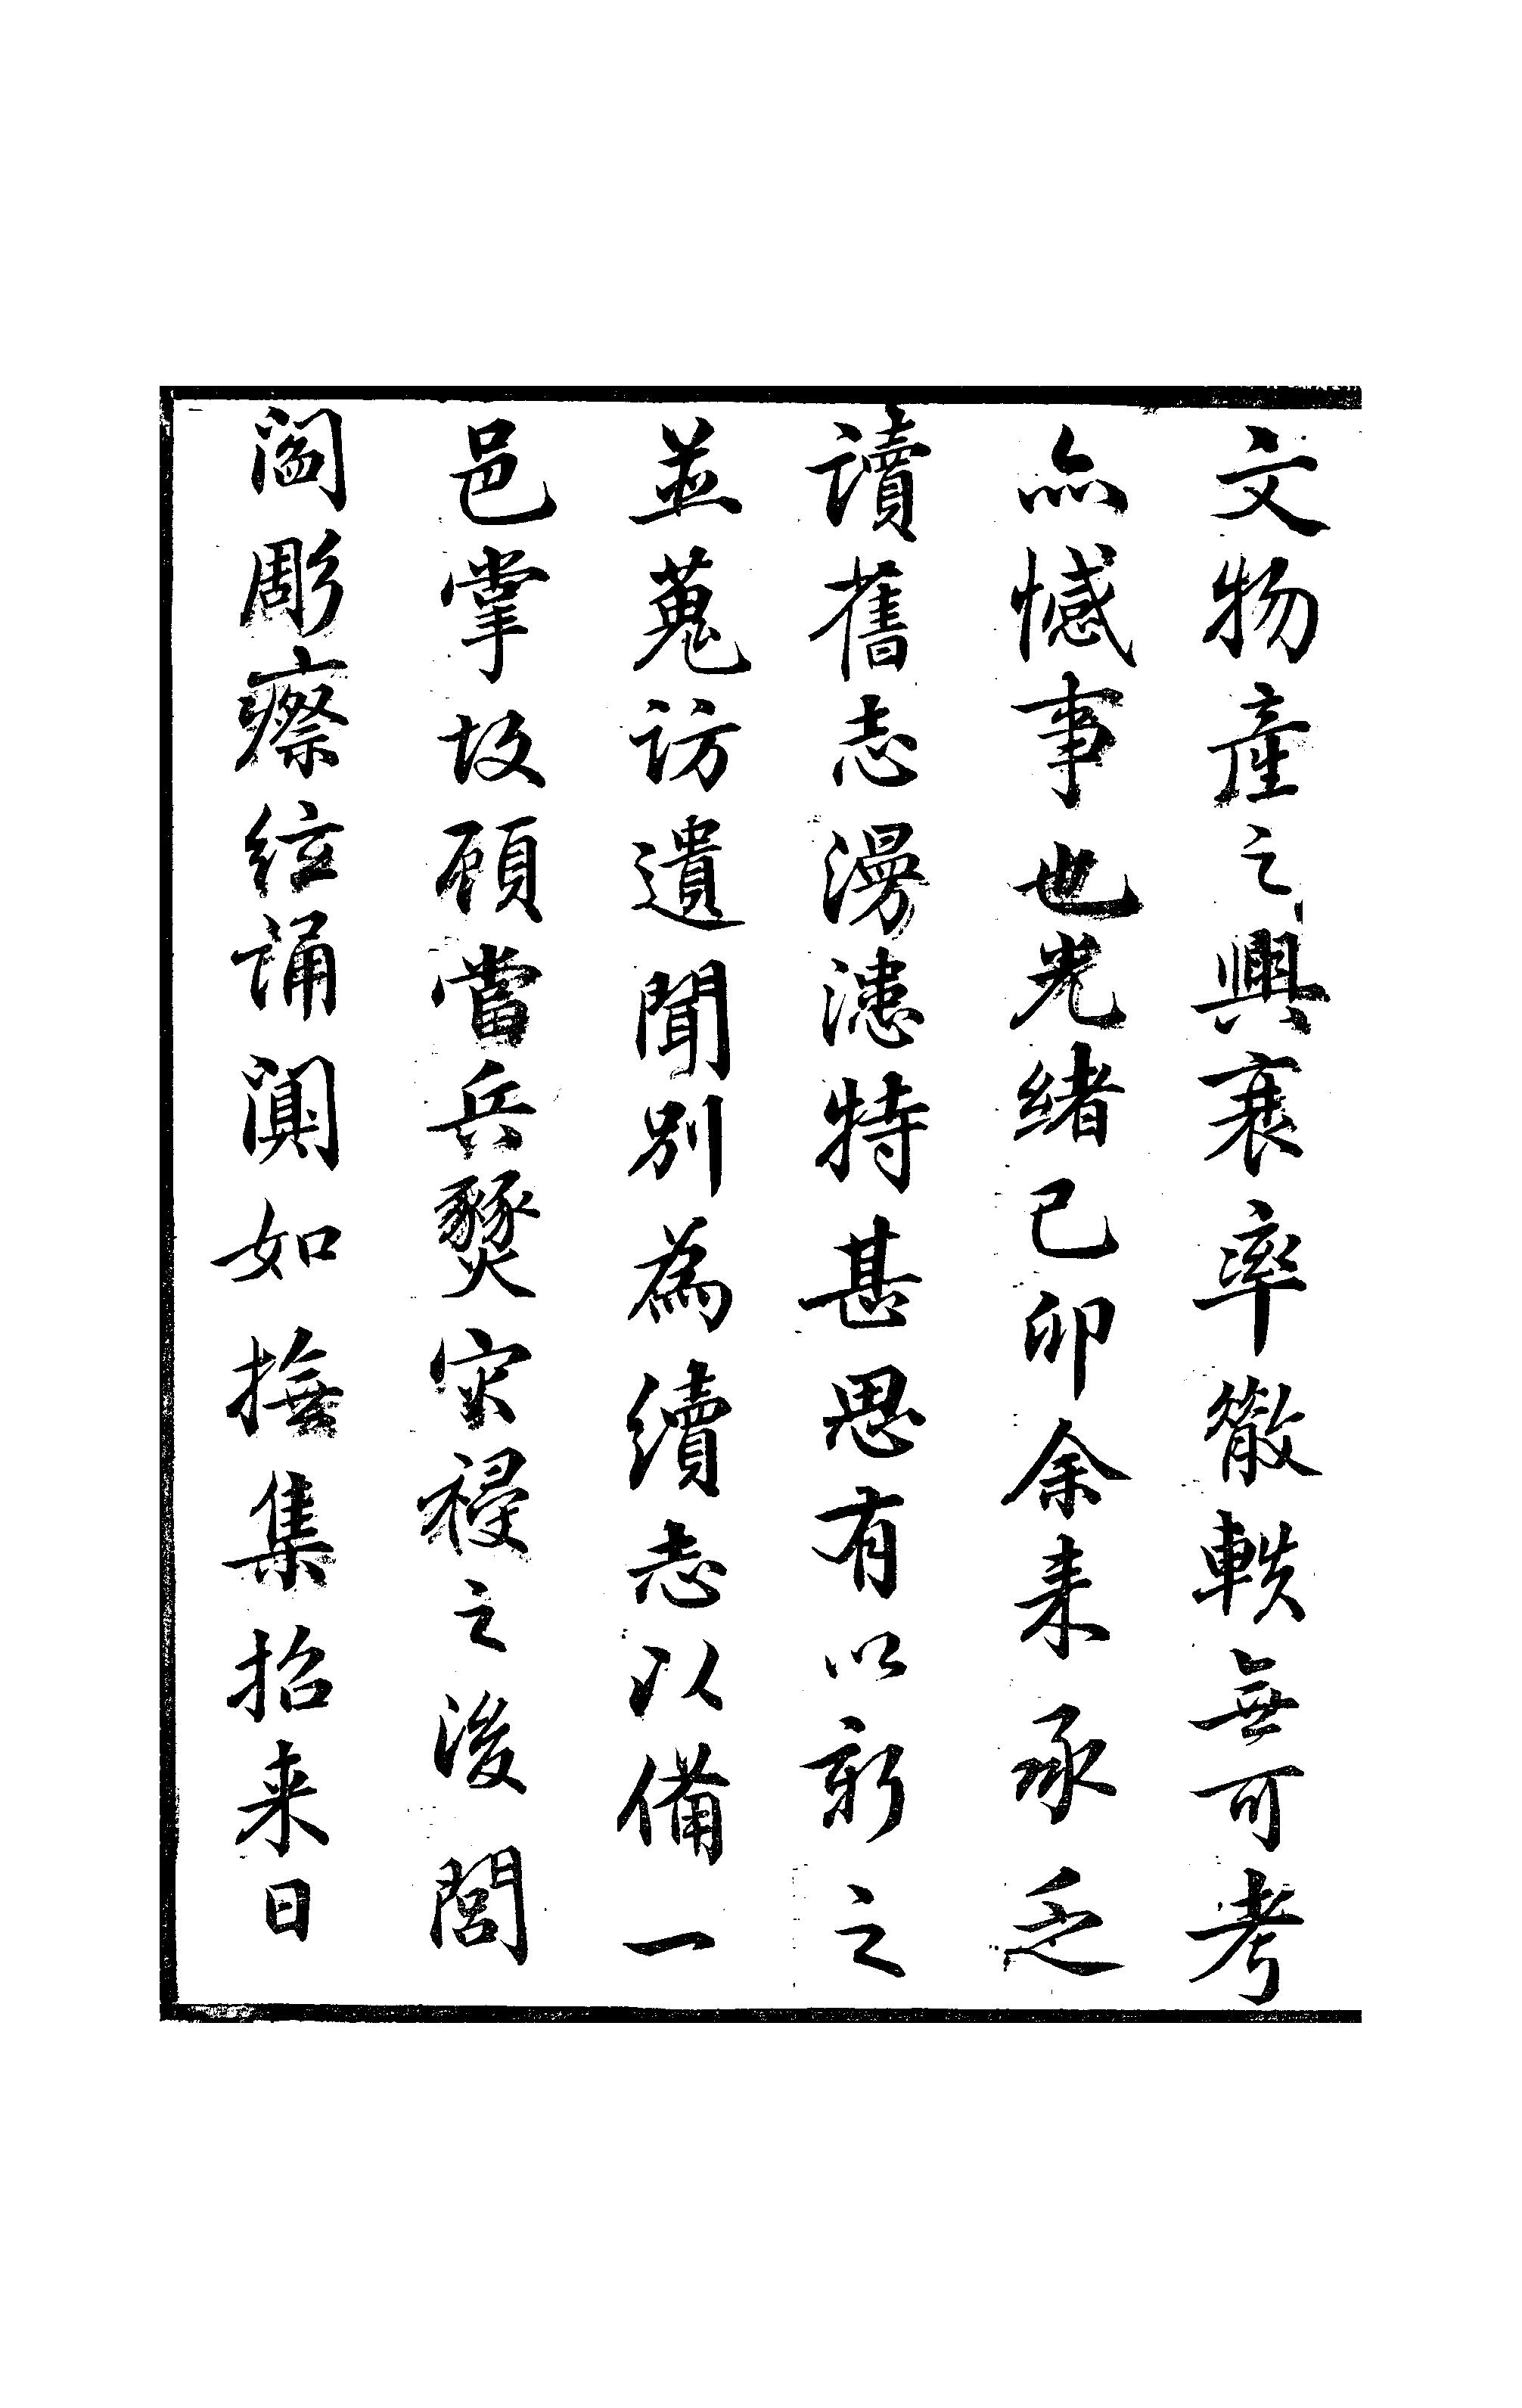 文物產之興衰率散軼無可考
亦憾事也光緒己卯余来承乏
讀舊志漫漶特甚思有以新之
並蒐訪遺聞別為續志以備一
邑掌故顧當兵燹灾祲之後閭
閻彫瘵絃誦闃如撫集招来日